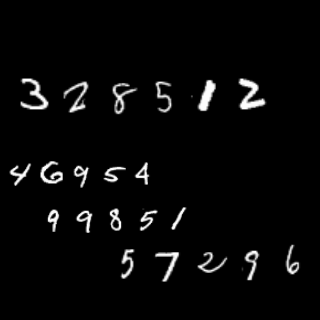 328512
46954
99851
57296